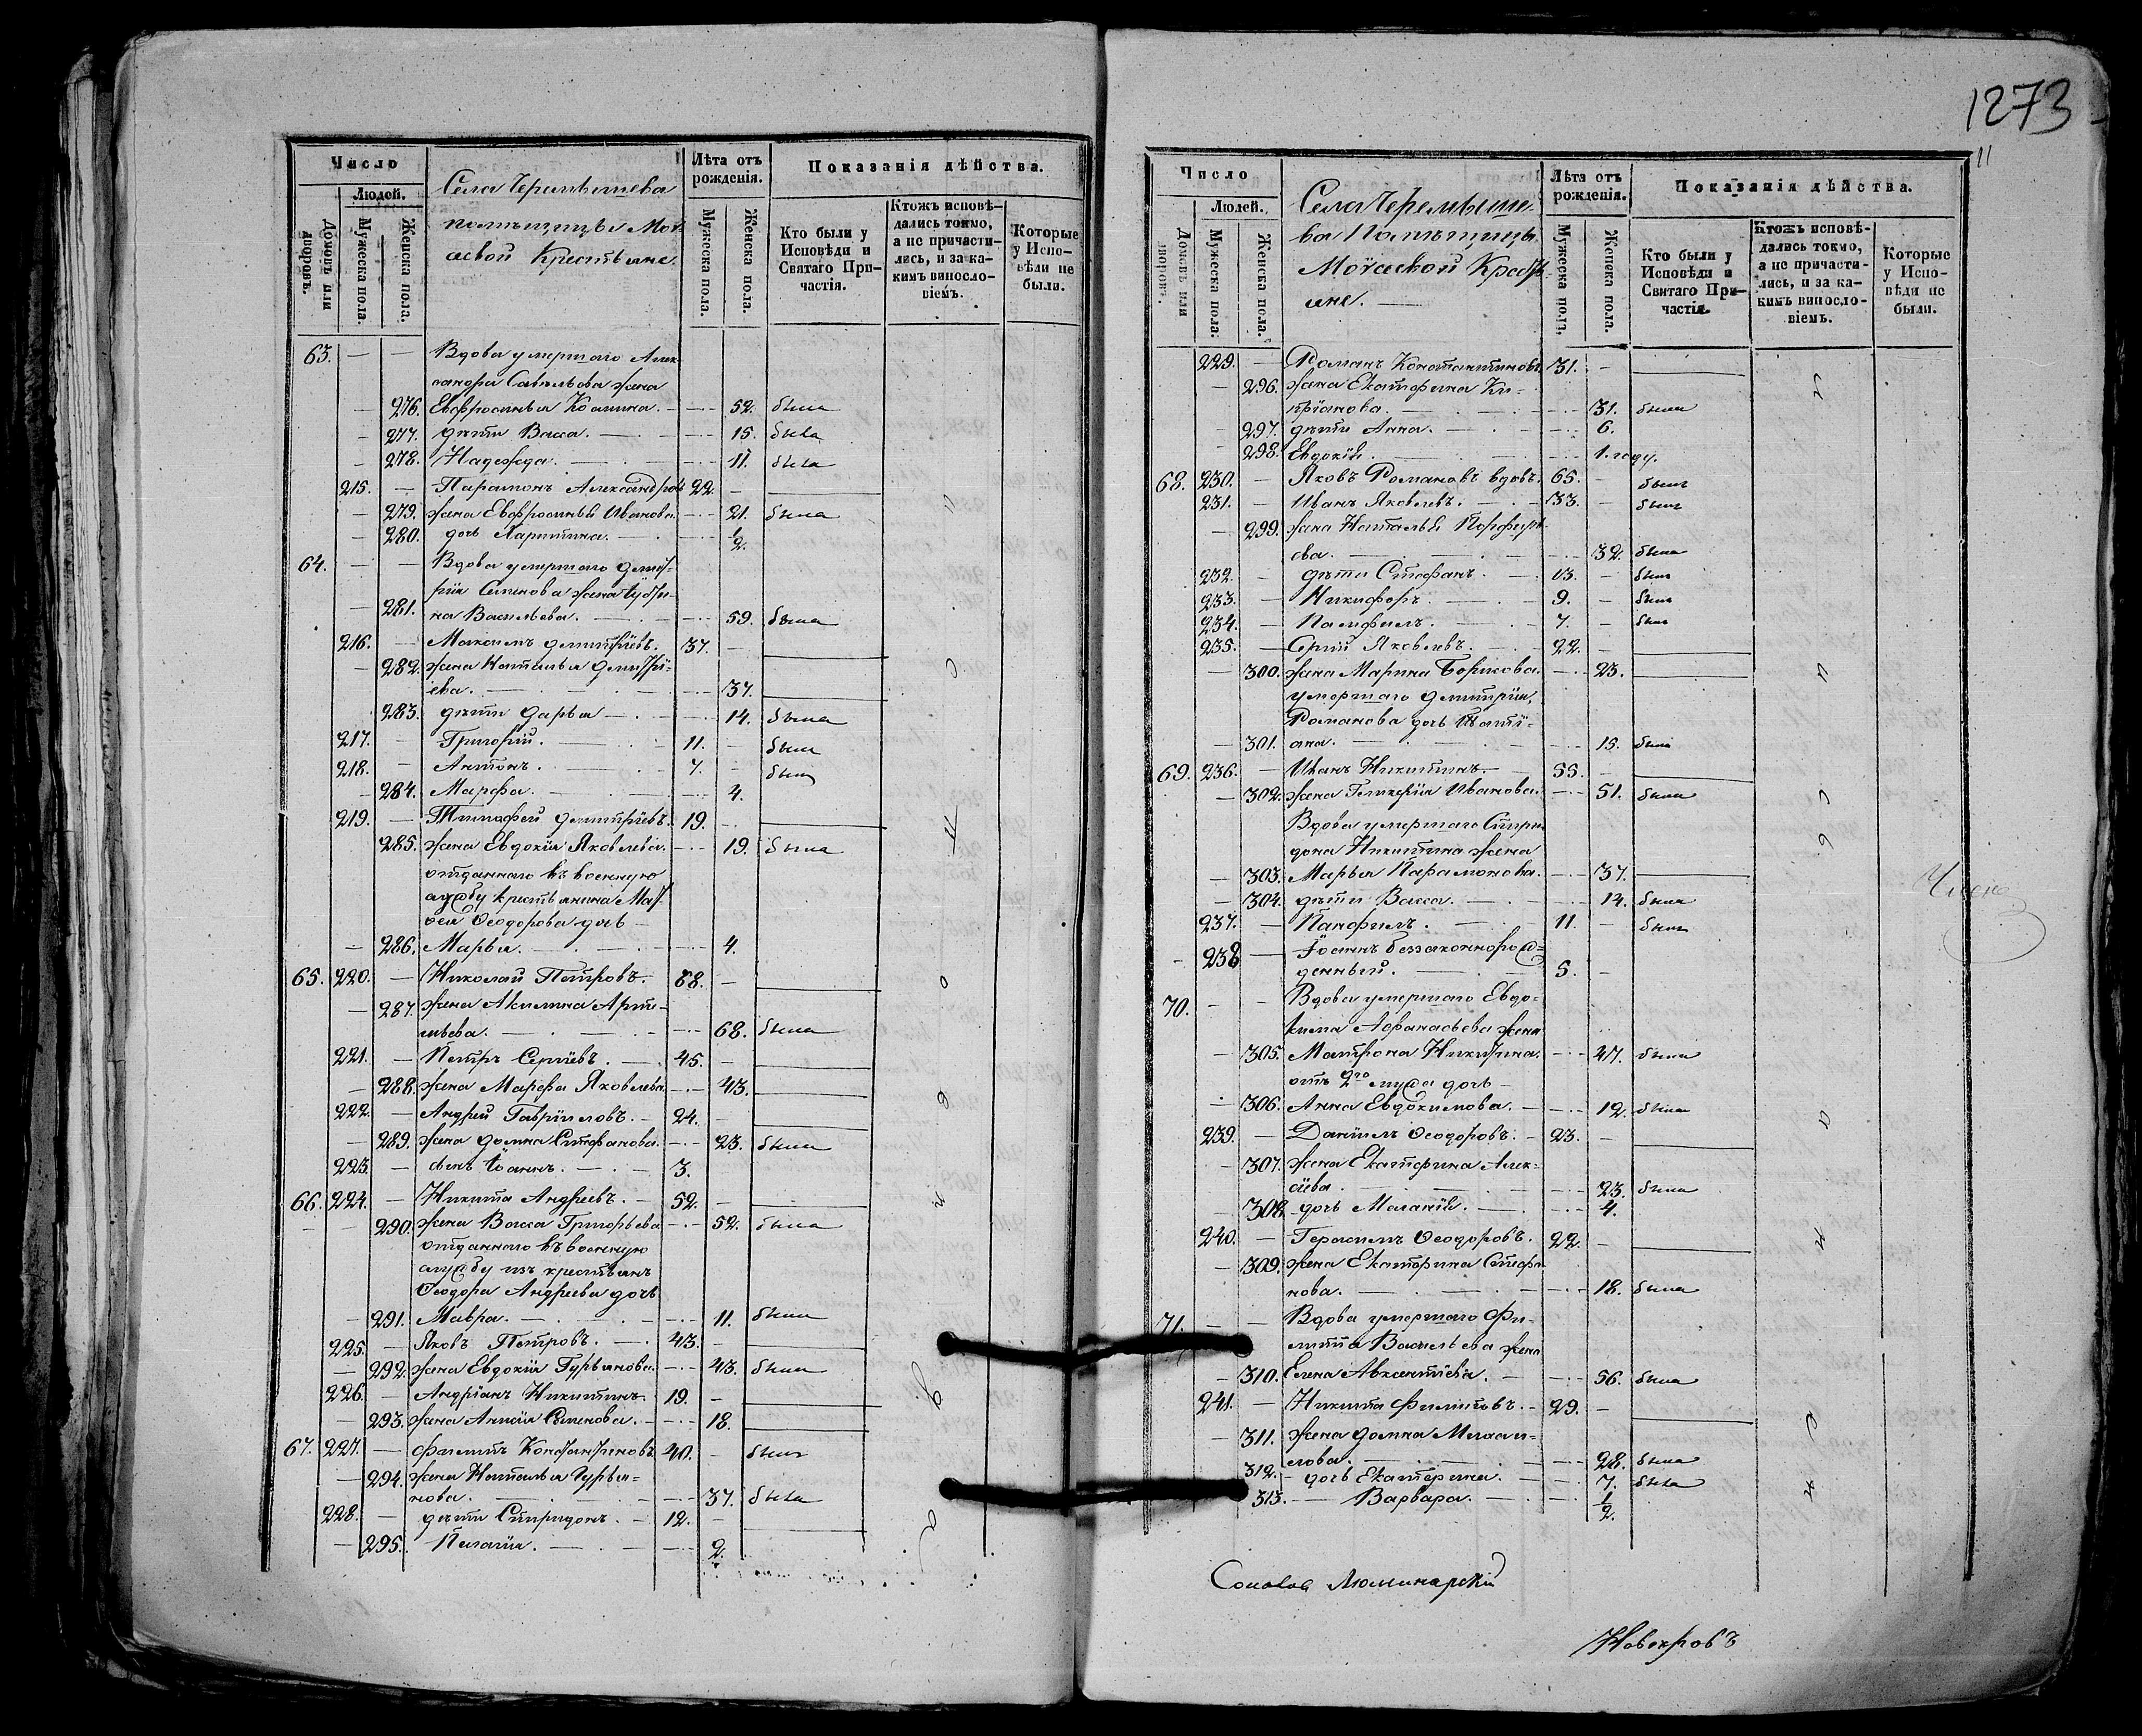 1273
11
Число
Людей.
Домовъ или дворовъ.
Мужеска пола.
Женска пола.
Села Черемышева
помѣщицы
Крестьяне.
Лѣта отъ рожденія.
Мужеска пола.
Женска пола.
Показанія дѣйства.
Кто были у Исповѣди и Святаго При-частія.
Ктожъ исповѣ-дались токмо, а не причасти-лись, и за ка-кимъ винослo-віемъ.
Которые у Испо-вѣди не были.
63. — — Вдова умершаго Алек-
сандра Савельева жена
— 276. Евфросинья Козмина. — 52. была
— 277. дѣти Васса. — 15. была
— 278. Надежда. — 11. была
215. — Парамонъ Александровъ 22. —
— 279. жена Евфросинья Иванова — 21. была
— 280. дочь Харитина. — 1/2.
64. — — Вдова умершаго Дмит-
рія Семенова жена
— 281. на Васильева. — 59. была
216. — Максимъ Дмитріевъ. 37. —
— 282. жена Наталья Дмитрі-
ева. — 37.
283. дѣти Дарья — 14. была
217. — Григорій. — 11. — былъ
218. — Антонъ. — 7. — былъ
— 284. Марфа. — 4.
219. — Тимофей Дмитріевъ. 19. —
285. жена Евдокія Яковлева. — 19. была
отданнаго въ военную
службу крестьянина Мат-
вея Ѳеодорова дочь —
— 286. Марья. — 4.
65. 220. — Николай Петровъ. 68. —
— 287. жена Акилина Арте-
мьева. — 68. была
221. — Петръ Сергіевъ. — 45. —
— 288. жена Марфа Яковлева — 43.
222. — Андрей Гавріиловъ. — 24. —
— 289. жена Домна Стефанова. — 23. была
223. — сынъ Іоаннъ. — 3.
66. 224. — Никита Андреевъ. — 52. —
— 290. жена Васса Григорьева — 52. была
отданнаго въ военную
службу изъ крестьянъ
Ѳеодора Андреева дочь
— 291. Мавра. — 11. была
225. — Яковъ Петровъ. — 43. —
— 292. жена Евдокія Гурьянова. — 43. была
226. — Андріанъ Никитинъ 19. —
— 293. жена Анисія Семенова. — 18.
67. 227. — Филиппъ Константиновъ 40. — былъ
— 294. жена Наталья Гурья-
нова. — 37. была
228. — дѣти Спиридонъ. — 12. —
— 295. Пелагія. — 2.
Число
Людей.
Домовъ или дворовъ.
Мужеска пола.
Женска пола.
Села Черемыше-
ва Помѣщицы
Мочаевой Кресть-
яне. —
Лѣта отъ рожденія.
Мужеска пола.
Женска пола.
Показанія дѣйства.
Кто были у Исповѣди и Святаго При-частія.
Ктожъ исповѣ-дались токмо, а не причасти-лись, и за ка-кимъ винослo-віемъ.
Которые у Испо-вѣди не были.
229. — Романъ Константиновъ. 31. —
— 296. жена Екатерина Ки-
пріанова. — 31. была
— 297. дѣти Анна. — 6.
298. Евдокія. — 1. году.
68. 230. — Яковъ Романовъ вдовъ. 65. — былъ
231. — Иванъ Яковлевъ. — 33. — былъ
— 299. жена Наталья Порфирь-
ева. — 32. была
232. — дѣти Стефанъ. — 13. — былъ
233. — Никифоръ. — 9. — былъ
234. — Памфилъ. — 7. — былъ
235. — Сергій Яковлевъ. — 22. —
— 300. жена Марина Борисова. — 23.
умершаго Дмитрія
Романова дочь Тати-
— 301. ана. — 15. была
69. 236. — Иванъ Никитинъ. — 55. —
— 302. жена Гликерія Иванова. — 51. была
Вдова умершаго Спири-
дона Никитина жена
— 303. Марья Парамонова. — 37.
— 304. дѣти Васса. — 14. была
237. — Панфилъ. — 11. — былъ
— 238 — Іоаннъ беззаконнорож-
денный. — 5. —
70. — — Вдова умершаго Евдо-
кима Афанасьева жена
— 305. Матрона Никитина. — 47. была
отъ 2го мужа дочь —
— 306. Анна Евдокимова. — 12. была
239. — Даніилъ Ѳеодоровъ. — 23. —
— 307. жена Екатерина Алек-
сіева. — 23. была
— 308 — дочь Маланія. — 4.
240. — Герасимъ Ѳеодоровъ. 22. —
— 309. жена Екатерина Стефа-
нова. — 18. была
71. — — Вдова умершаго Фи-
липпа Васильева жена
— 310. Елена Авксентіева. — 56. была
241. — Никита Филиповъ. — 29. —
— 311. жена Домна Михаи-
лова. — 28. была
312. — дочь Екатерина. — 7. была
313. — Варвара. — 1/2.